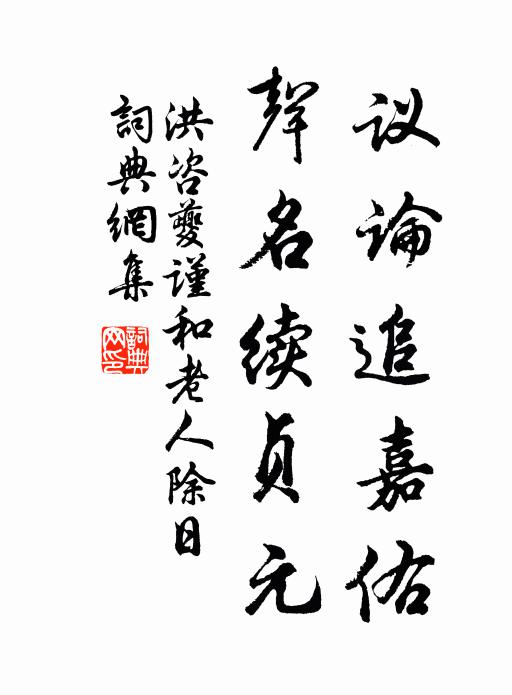 议论追嘉佑
聲名续贞元
洪咨夔谨和老人除日
詞典網集
詞典网印